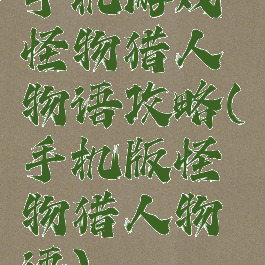 手机游戏
怪物猎人
物语攻略(
手机版怪
物猎人物
语)